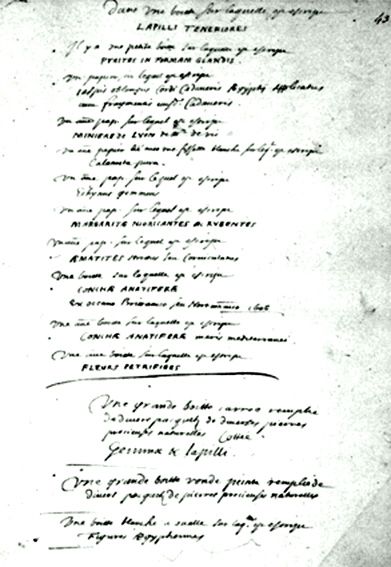 43
Dans une boitte sur laquelle est escript
LAPILLI TENERIORES
Il y a une petite boitte sur laquelle est escript
PYRITES IN FORMAM GLANDIS.
Un papier, en lequel est escript
Iaspis oblongus Cordi Cadaveris Ægyptij applicatus
cum fragmentis Cadaveris.
Un aũe pap. sur lequel est escript
MINIERE DE LYON
Un aũe papier blanche sur leql. est escript
Calamita
Un aũe pap. sur lequel est escript
Echynus gemmeus
Un aũe pap. sur lequel est escript
MARGARITÆ NIGRICANTES & RUBENTES
Un aũe pap. sur lequel est escript
ÆMATITES
Une boitte sur laquelle est escript
CONCHÆ ANATIFERÆ
Ex oceano seu
Une aũe boitte sur laquelle est escript
CONCHÆ ANATIFERÆ maris mediterranei
Une aũe boitte sur laquelle est escript
FLEURS PETRIFIEES
Une grande boitte carree remplie
de divers pacquetz de diverses pierres
precieuses naturelles Cottee
Gemmæ & lapilli
Une grande boitte ronde peinte remplie de
divers pacquetz de pierres precieuses naturelles
Une boitte blanche a sur laqle. est escript
Figures Ægyptiennes